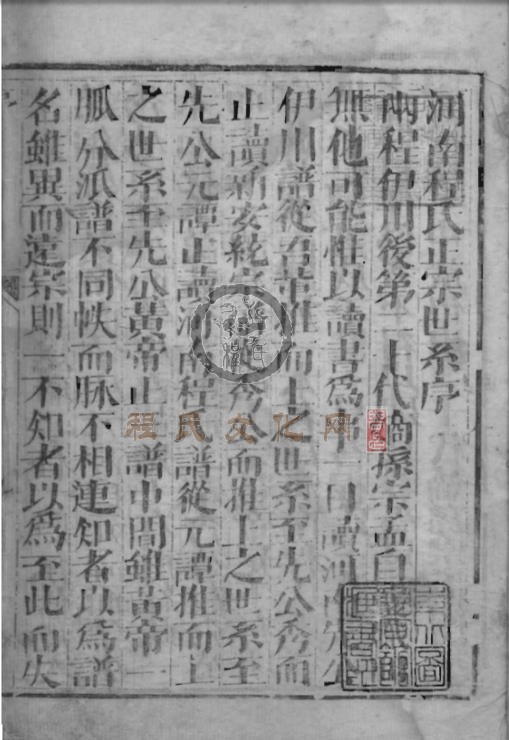 河南程氏正宗世系序
兩程伊川後第二十代嫡孫宗孟曰
無他可能惟以讀書為事一日讀河南
伊川譜從召革推而上之世系至先公秀而
止讀新安統宗譜從秀公而推上之世系至
先公元譚止讀河南程氏譜從元譚推而上
之世系至先公黃帝止三譜中間雖黃帝一
脈分派譜不同帙而脉不相連知者以為譜
名雖異而達宗則一不知者以為至此而失
程氏文化网